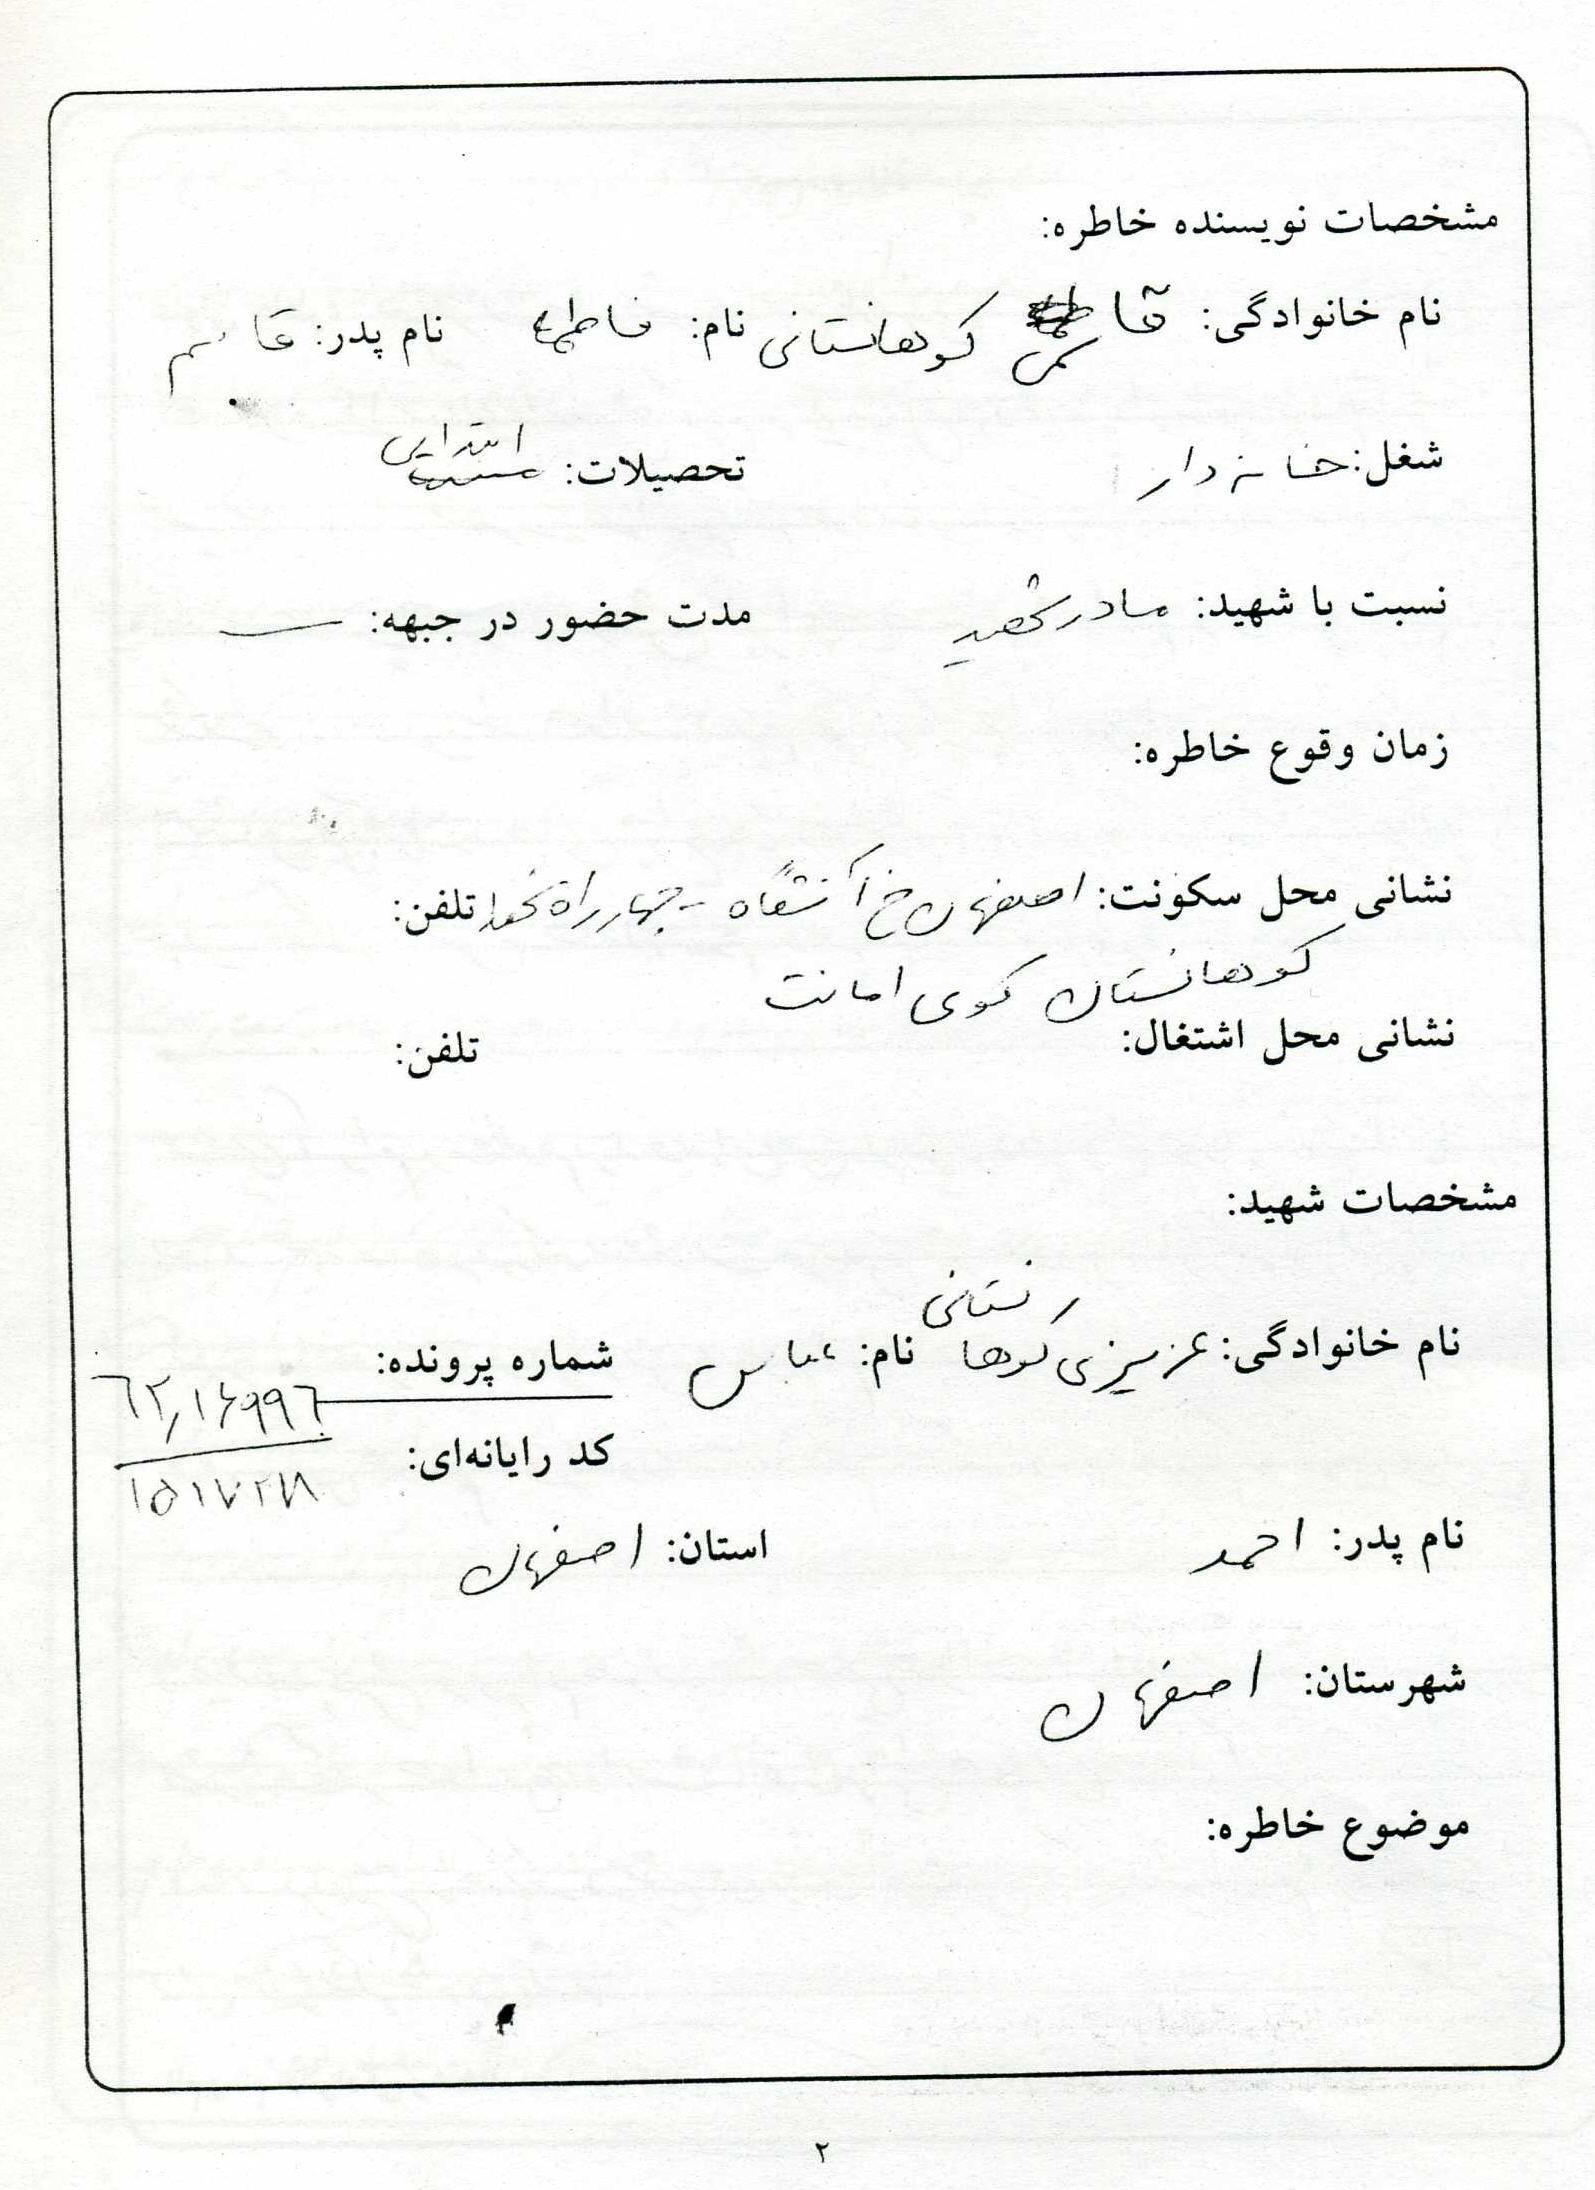 مشخصات نویسنده خاطره:
نام خانوادگی: قاسمی کوهانستانی نام: فاطمه نام پدر: قاسم
شغل: خانه دار تحصیلات: ابتدایی
نسبت با شهید: مادر شهید مدت حضور در جبهه: —
زمان وقوع خاطره:
نشانی محل سکونت: اصفهان خ آتشگاه - چهار راه تلفن:
کوهانستان کوی امانت
نشانی محل اشتغال: تلفن:
مشخصات شهید:
نام خانوادگی: عزیزی کوهانستانی نام: عباس شماره پرونده: ۶۲,۱۶۹۹۶
کد رایانه‌ای: ۱۵۱۷۲۷۸
نام پدر: احمد استان: اصفهان
شهرستان: اصفهان
موضوع خاطره:
۲